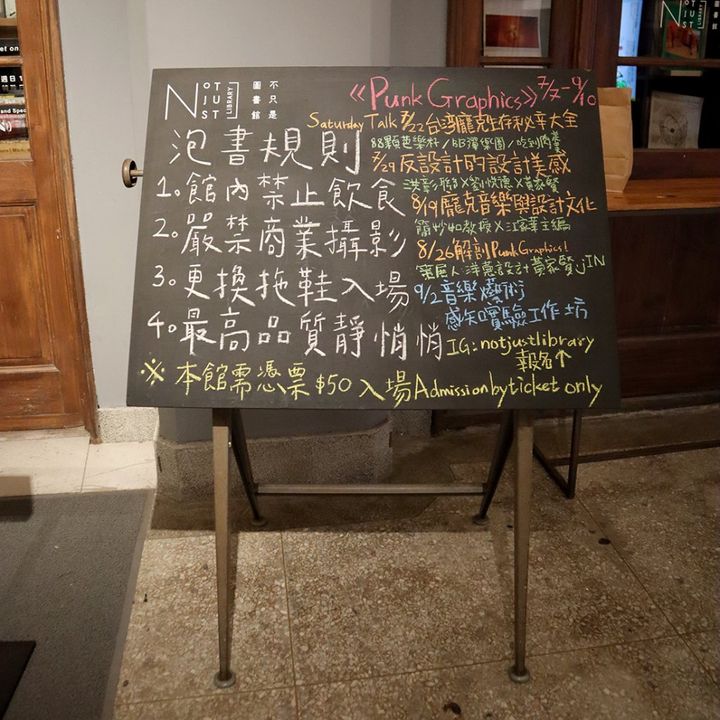 NOT JUST LIBRARY
不只是圖書館
泡書規則
1。館內禁止飲食
2。嚴禁商業攝影
3。更換拖鞋入場
4。最高品質靜悄悄
※ 本館需憑票$50入場Admission by ticket only
《Punk Graphics》7/7-9/10
Saturday Talk 7/22 台灣龐克生存秘辛大全
88顆芭樂籽
7/29 反設計的設計美感
8/19龐克音樂與設計文化
簡妙如教授X江家華主編
8/26解剖Punk Graphics!
策展人:洋蔥設計黃家賢JIN
9/2音樂療術
感知實驗工作坊
IG:notjustlibrary
報名↑